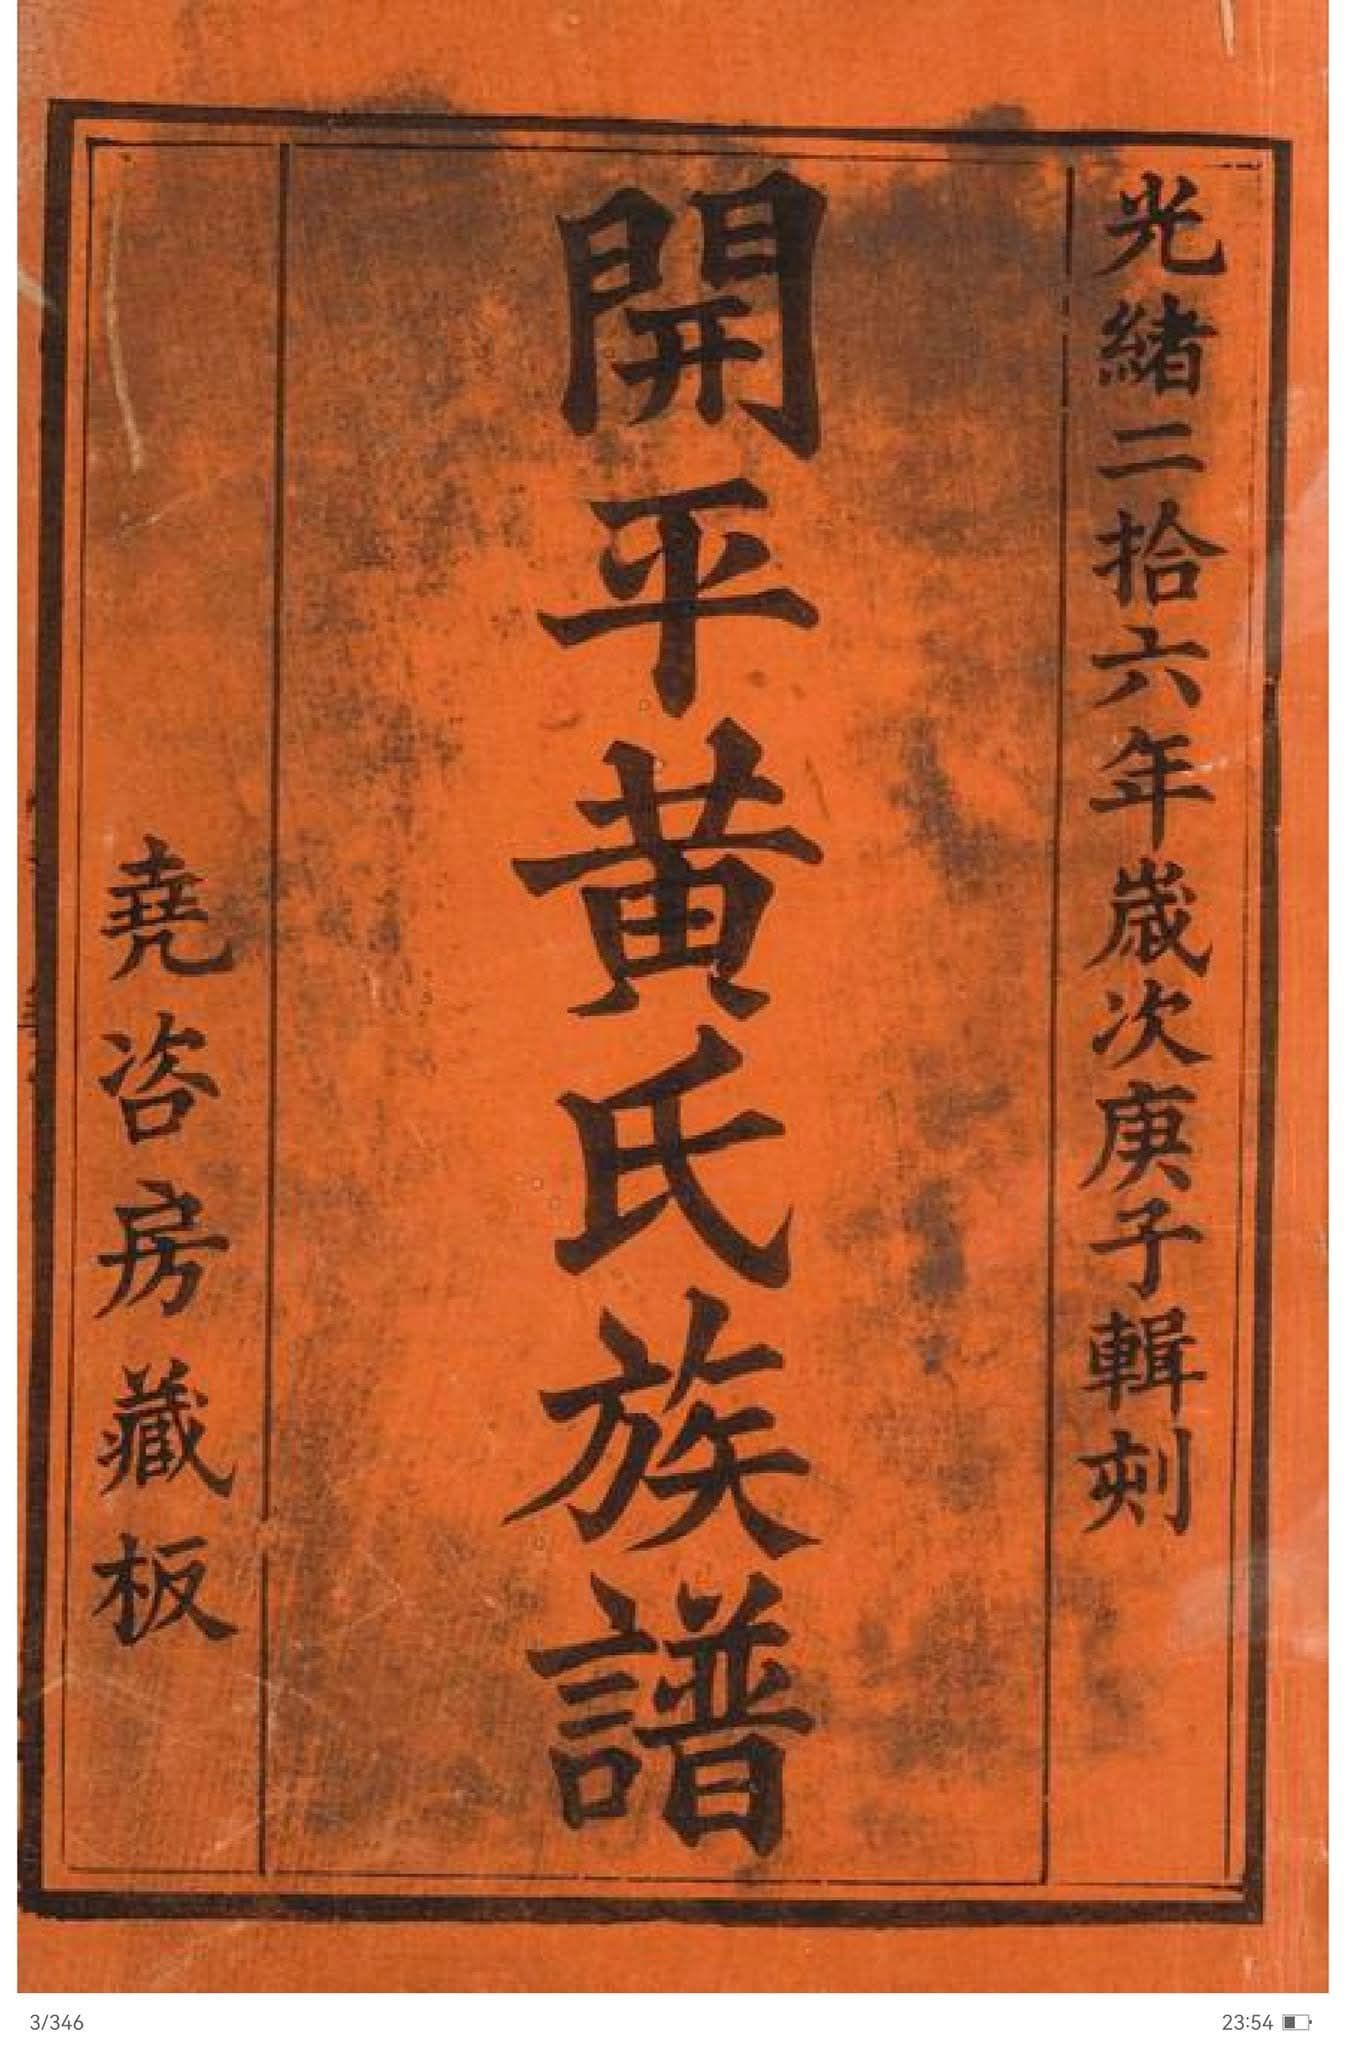 光緒二拾六年歲次庚子輯刻
開平黃氏族譜
堯咨房藏板
3/346
23:54